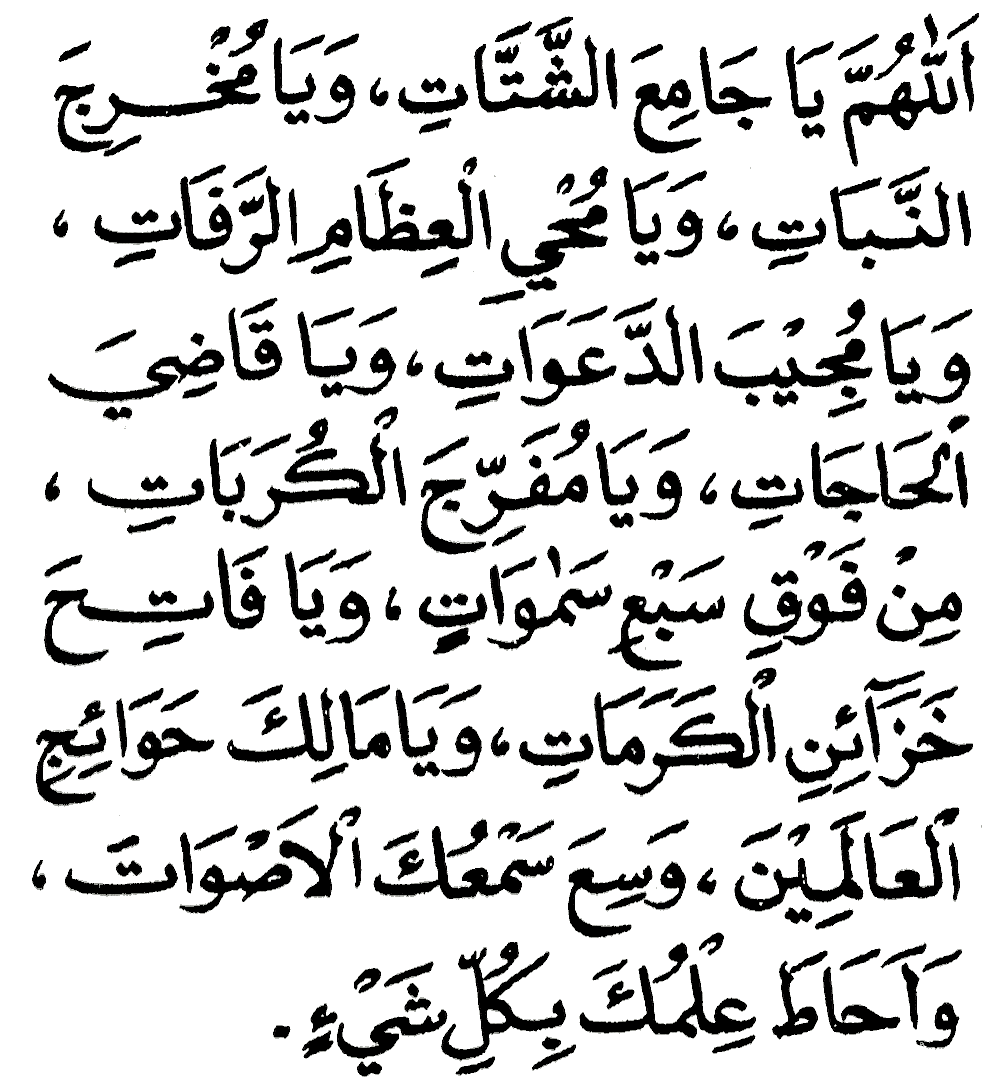 اَللّٰهُمَّ يَا جَامِعَ الشَّتَّاتِ، وَيَا مُخْرِجَ
النَّبَاتِ، وَيَا مُحْيِ الْعِظَامِ الرَّفَاتِ،
وَيَا مُجِيْبَ الدَّعَوَاتِ، وَيَا قَاضِيَ
الْحَاجَاتِ، وَيَا مُفَرِّجَ الْكُرَبَاتِ،
مِنْ فَوْقِ سَبْعِ سَمٰوَاتٍ، وَيَا فَاتِحَ
خَزَآئِنِ الْكَرَمَاتِ، وَيَا مَالِكَ حَوَائِجِ
الْعَالَمِيْنَ، وَسِعَ سَمْعُكَ الْاَصْوَاتَ،
وَاَحَاطَ عِلْمُكَ بِكُلِّ شَيْءٍ.